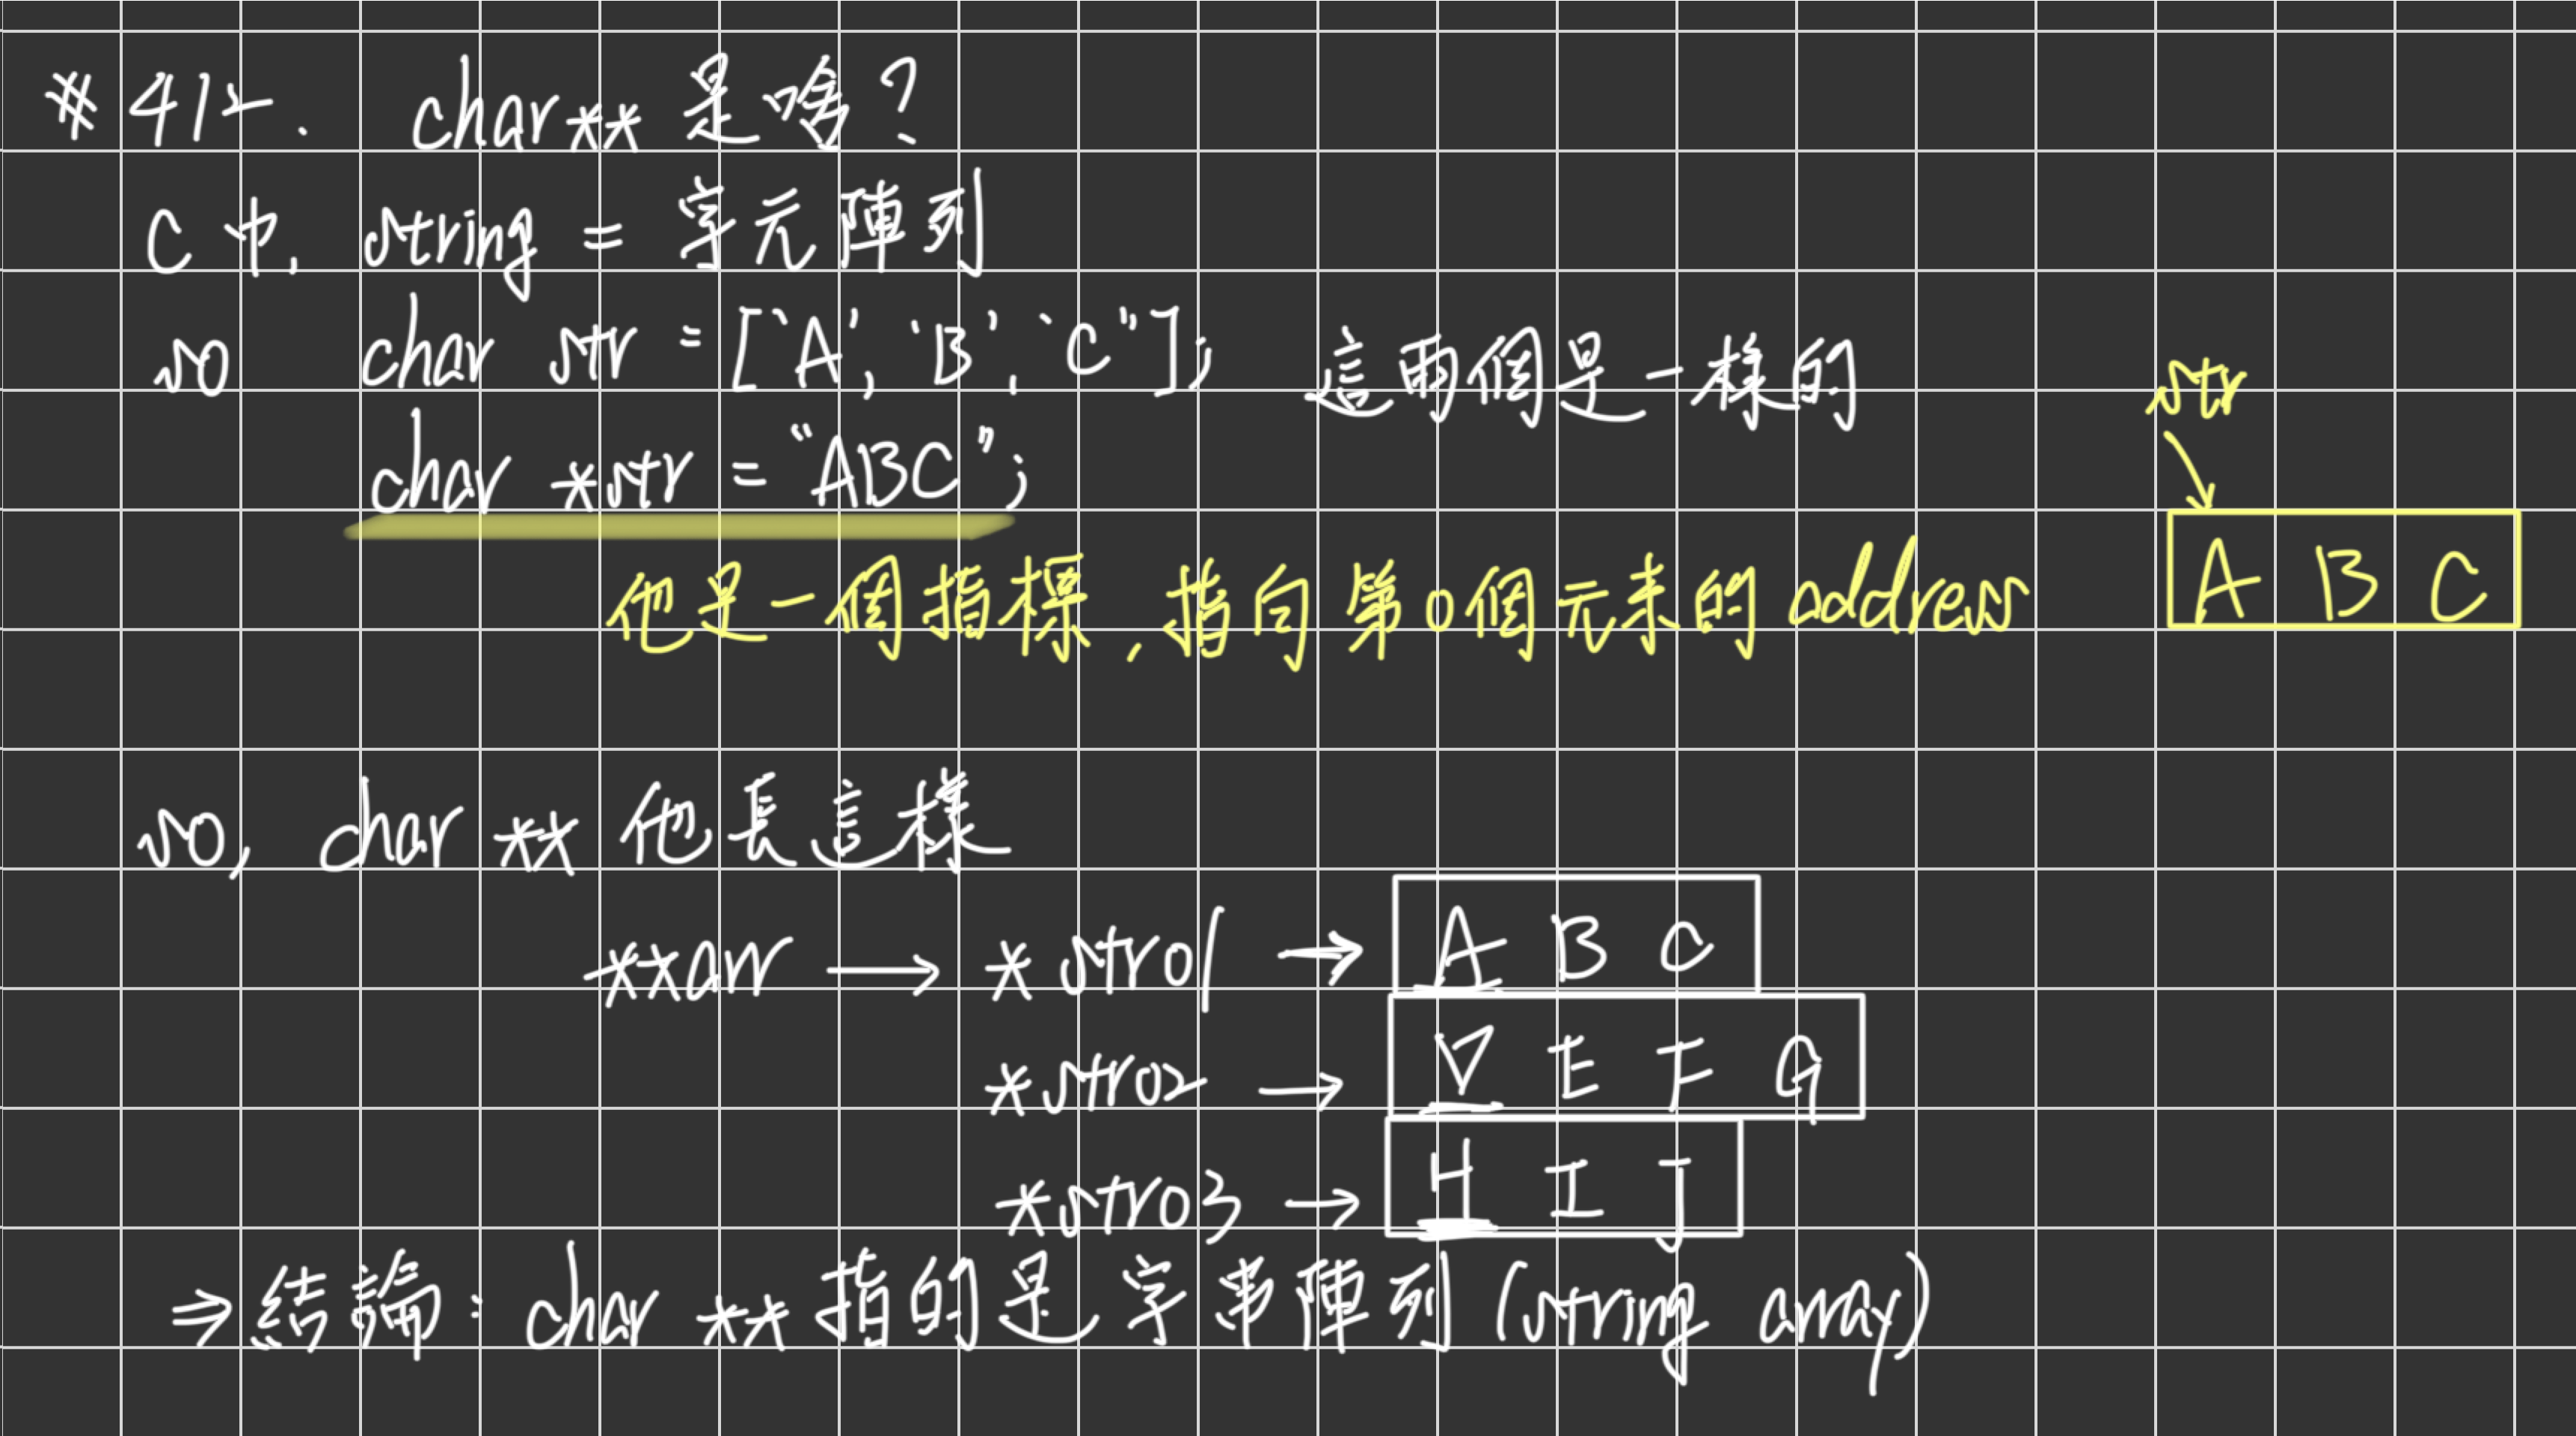 #412. char** 是啥?
C 中, string = 字元陣列
so char str = ['A', 'B', 'C"]; 這兩個是一樣的
str
char *str = "ABC";
他是一個指標, 指向第0個元素的 address
A B C
so, char ** 他長這樣
**arr → *str01 → A B C
*str02 → D E F G
*str03 → H I J
⇒ 結論: char ** 指的是字串陣列 (string array)